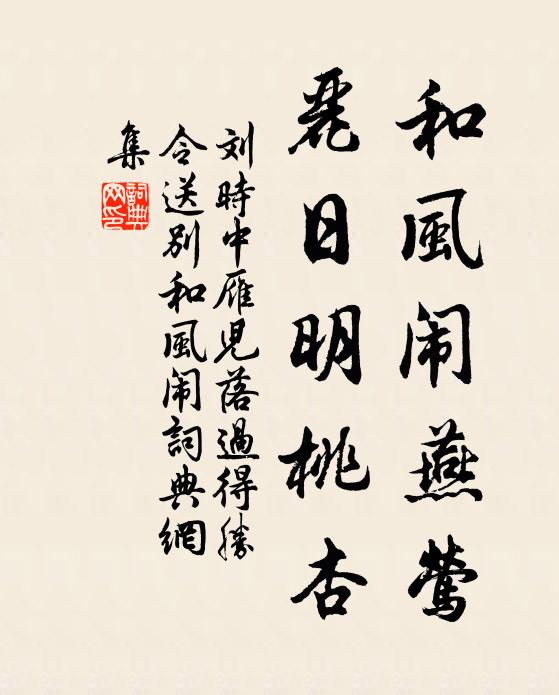 和風闹燕莺
麗日明桃杏
刘時中雁児落過得勝
令送别和風闹詞典網
集
詞典
网印